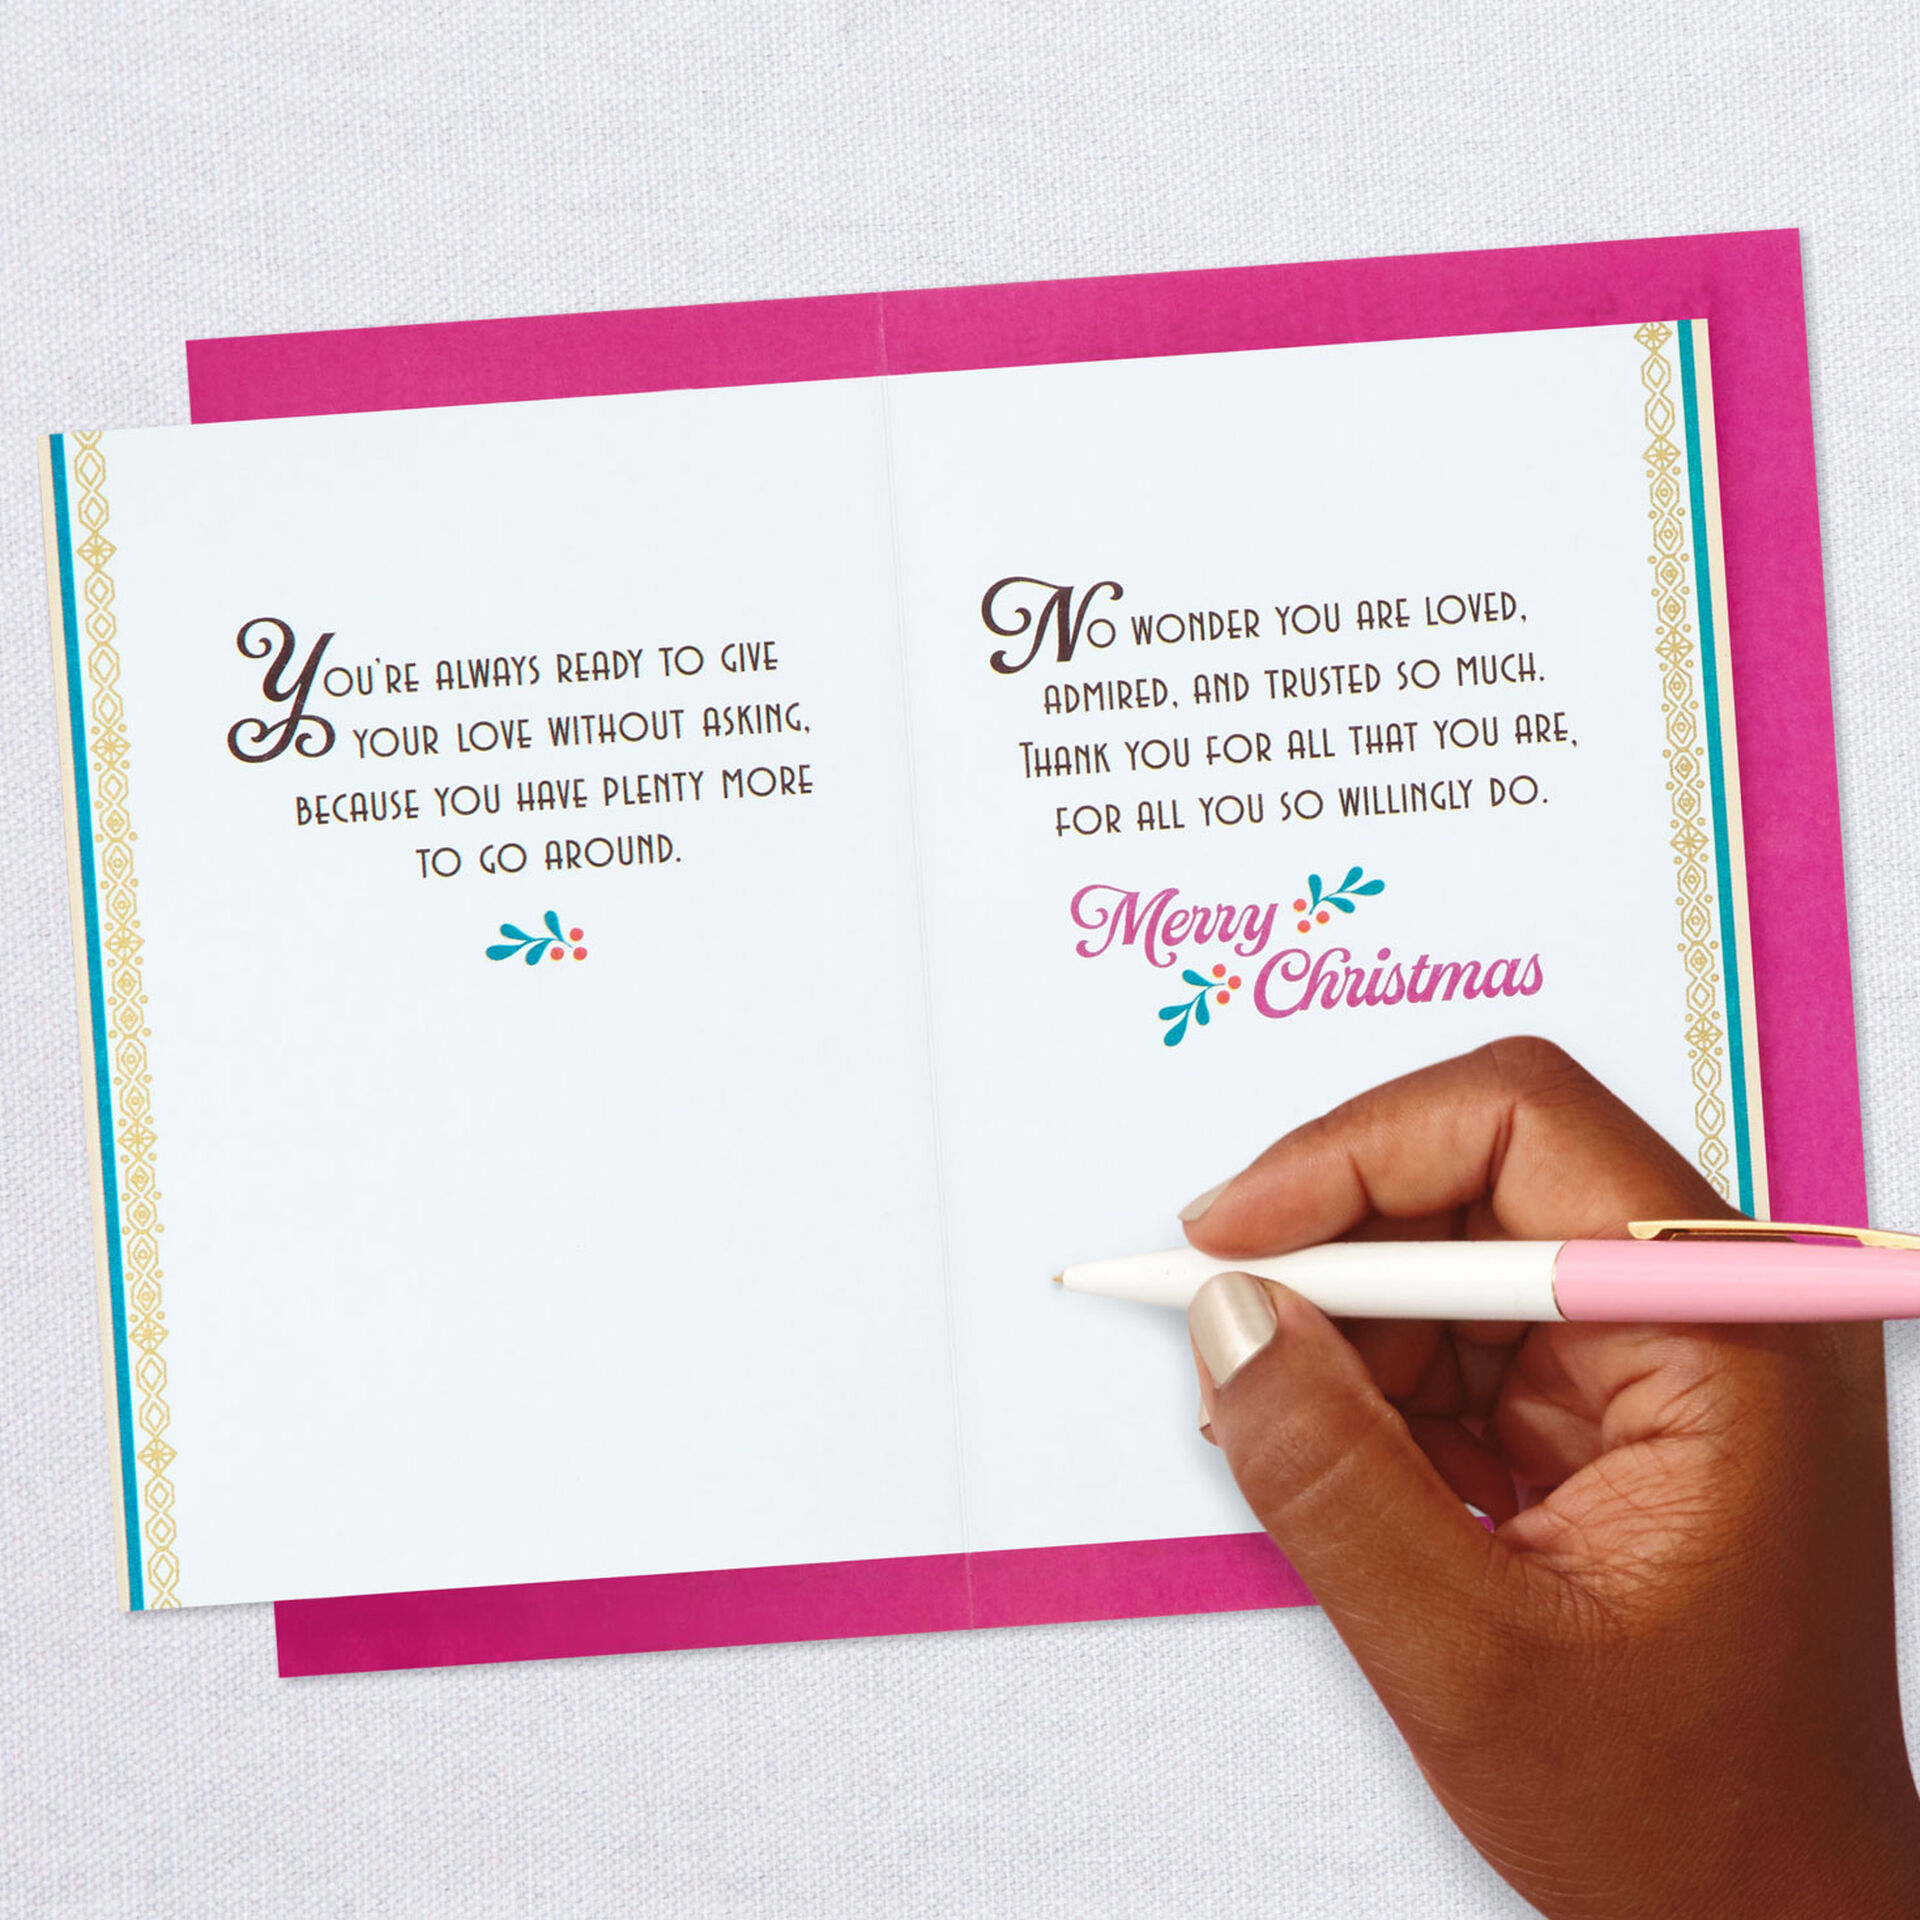 You're always ready to give
your love without asking,
because you have plenty more
to go around.
No wonder you are loved,
admired, and trusted so much.
Thank you for all that you are,
for all you so willingly do.
Merry
Christmas